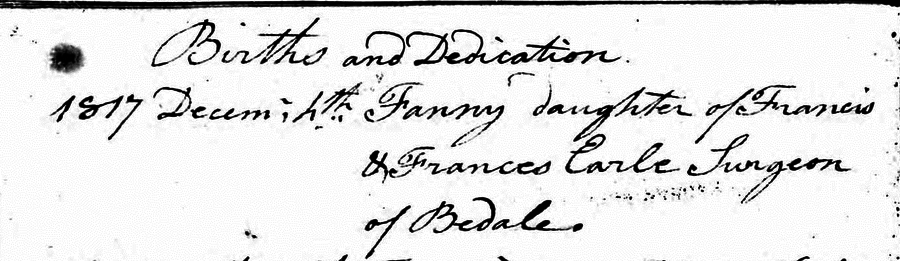 Births and Dedication.
1817 Decem: 4th: Fanny daughter of Francis
& Frances Earle Surgeon
of Bedale.